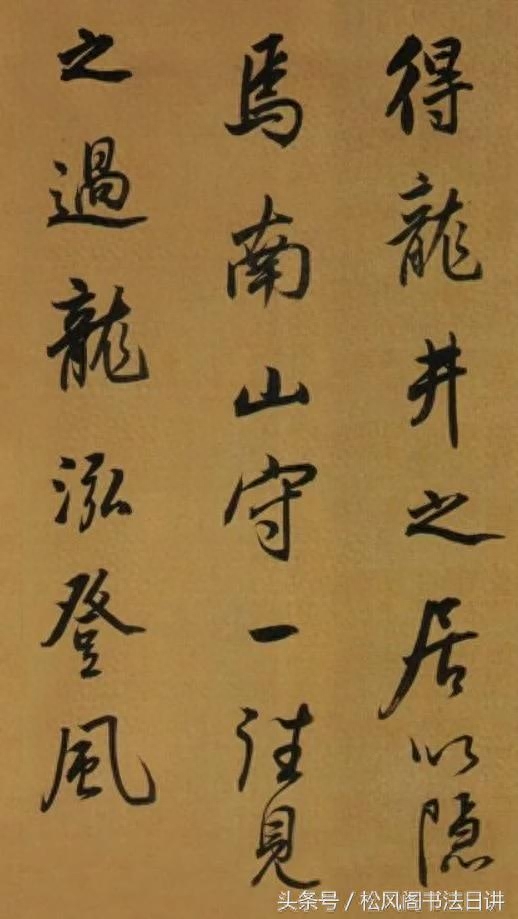 得龍井之居以隱
焉南山守一往見
之過龍泓登風
头条号／松风阁书法日讲